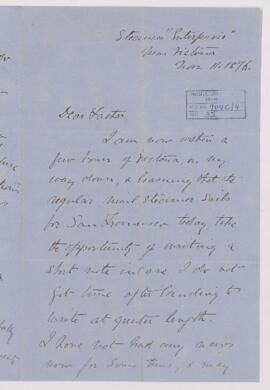 Steamer "Enterprise"
Near Victoria
Nov 11. 1876.
Dear Father
I am now within a
few hours of Victoria on my
way down, & learning that the
regular mail steamer sails
for San Francisco today take
the opportunity of writing a
short note in case I do not
get time after landing to
write at greater length.
I have not had any news
now for some time, & may